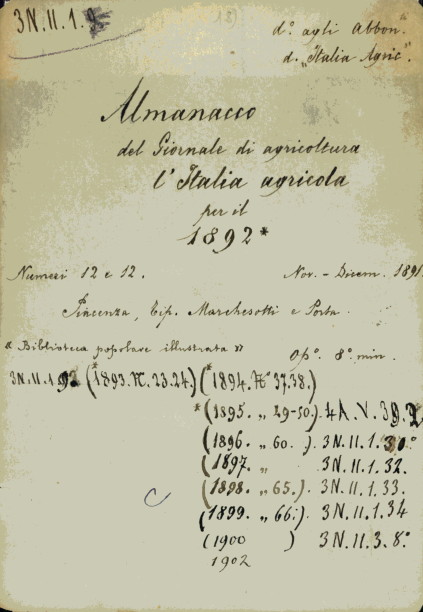 3N.II.1.
d.º agli Abbon.ti
d. "Italia Agric".
Almanacco
del Giornale di agricoltura
l'Italia agricola
per il
1892*
Numeri 12 e 12. Nov. - Dicem. 1891
Piacenza, Tip. Marchesotti e Porta.
« Biblioteca popolare illustrata » Op.º 8.º min.
3N.II.1.92 (*1893. N. 23.24.) (*1894. Nº 37.38.)
*(1895. „ 49-50.) 4A.V.39.2
(1896. „ 60. ). 3N.II.1.30º
(1897. „ 3N.II.1.32.
(1898. „ 65.). 3N.II.1.33.
(1899. „ 66.). 3N.II.1.34
(1900 ) 3N.II.3.8º
1902
C